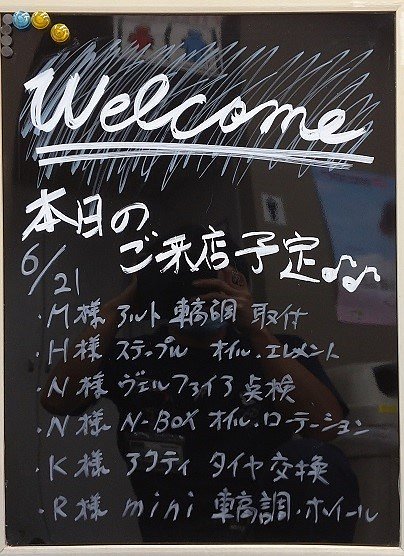 Welcome
本日の
ご来店予定♪♫
6/21
・M様 アルト 車高調 取付
・H様 ステップル オイル・エレメント
・N様 ヴェルファイア 点検
・N様 N-BOX オイル・ローテーション
・K様 アクティ タイヤ交換
・R様 mini 車高調・ホイール